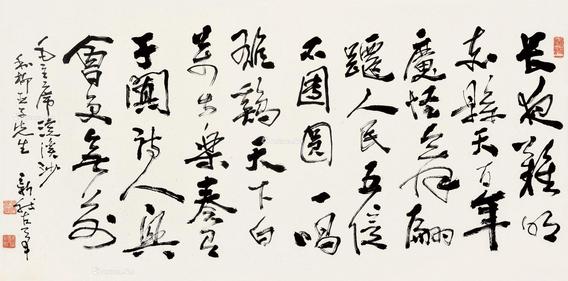 長夜難明
赤縣天百年
魔怪舞翩
躚人民五億
不團圓一唱
雄鷄天下白
萬方樂奏有
于闐詩人興
會更無前
毛主席浣溪沙
和柳亞子先生